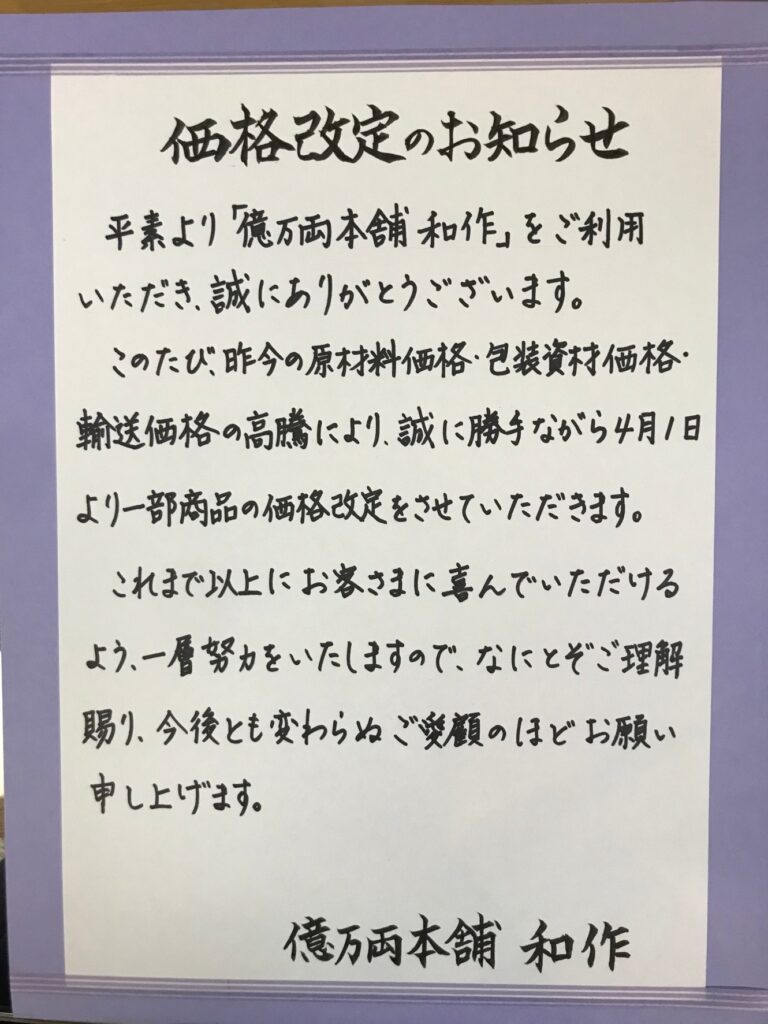 価格改定のお知らせ
平素より「億万両本舗 和作」をご利用
いただき、誠にありがとうございます。
このたび、昨今の原材料価格・包装資材価格・
輸送価格の高騰により、誠に勝手ながら4月1日
より一部商品の価格改定をさせていただきます。
これまで以上にお客さまに喜んでいただける
よう、一層努力をいたしますので、なにとぞご理解
賜り、今後とも変わらぬご愛顧のほどお願い
申し上げます。
億万両本舗 和作